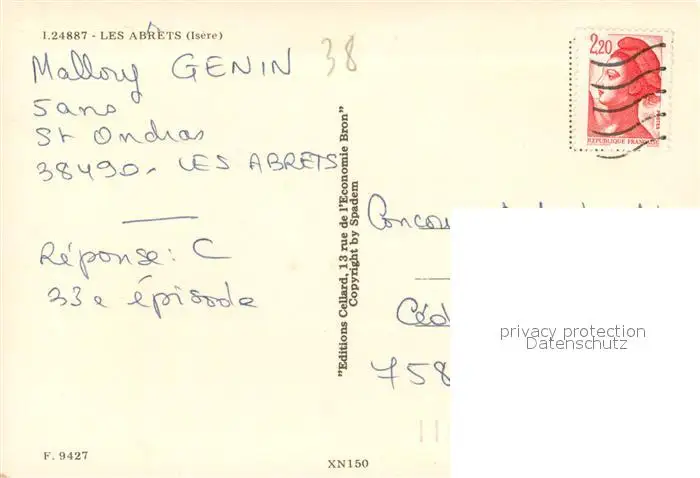 I.24887 - LES ABRETS (Isère)
38
Mallory GENIN
5 ans
St Ondras
38490. LES ABRETS
Réponse: C
33e épisode
"Editions Cellard, 13 rue de l'Economie Bron"
Copyright by Spadem
2,20
REPUBLIQUE FRANÇAISE
Concou
Céd
758
privacy protection
Datenschutz
F. 9427
XN150